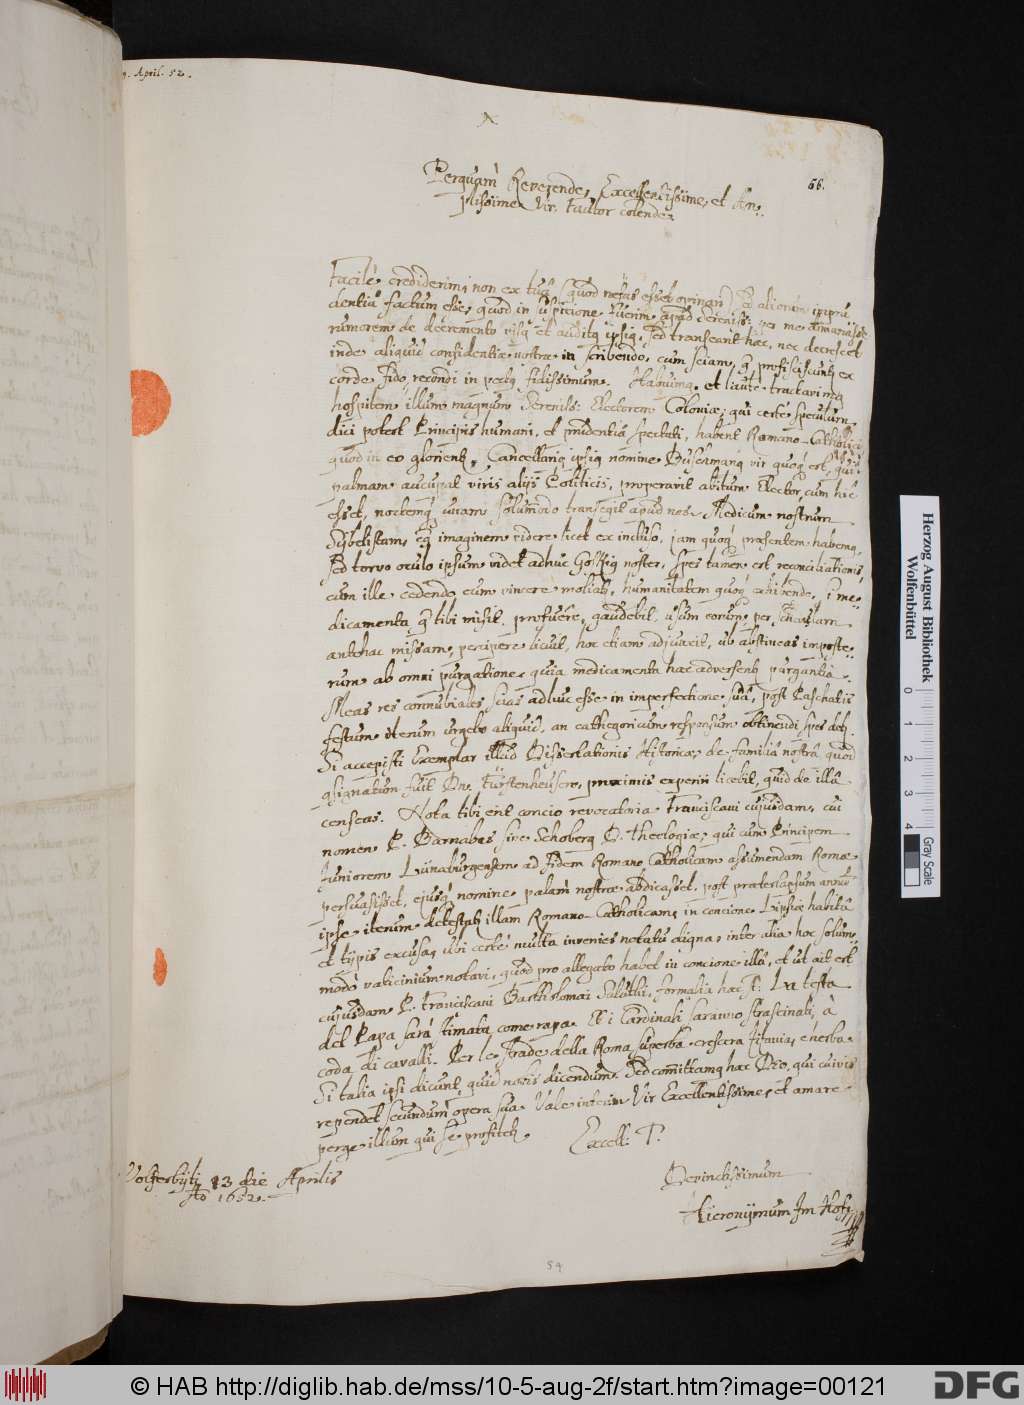 April. 52.
66.
Perquam Reverende, Excellentissime, et Am-
plissime Vir, Fautor colende
Facile crediderim, non ex tuâ (quod nefas esset opinari) sed aliorum impru
dentiâ factum esse, quod in suspicione fuerim apud Sereniss:
rumorem de decremento visq et auditq ipsiq, sed transeant hæc, nec decrescet
inde aliquid confidentiæ nostræ in scribendo, cum sciam, q profiscuntq ex
corde fido, recondi in pectq fidissimum. Habuimq et laute tractavimq
hospitem illum magnum Sereniss: Electorem Coloniæ, qui certe speculum
dici potest Principis humani, et prudentiâ spectati, habent Romano-Catholici
quod in eo glorientr, Cancellariq ipsiq nomine Buschmanq vir quoq est, qui
palmam aucupat viris alijs Politicis, properavit abitum Elector, cum hic
esset, noctemq unam solummodo transegit apud nos. Medicum nostrum
cq imaginem videre licet ex incluso, jam quoq præsentem habemq,
sed torvo oculo ipsum videt adhuc Goskiq noster, spes tamen est reconciliationis,
cum ille cedendo eum vincere moliatr, humanitatem quoq exhibendo, si me-
dicamenta q tibi misit, profuere, gaudebit, usum eorum, per schedulam
antehac missam, percipere licuit, hoc etiam adjuvarit, ub abstineas imposte-
rum ab omni purgatione, quia medicamenta hæc adversentr purgantia.
Meas res connubiales scias adhuc esse in imperfectione suâ, post Paschatis
festum iterum urgebo aliquid, an cathegoricum responsum obtinendi spes detr.
Si accepisti Exemplar illud Dissertationis Historicæ, de familiâ nostrâ, quod
assignatum fuit Dn. Fürstenheusero, proximis experiri licebit, quid de illâ
censeas. Nota tibi erit concio revocatoria Franciscani cujusdam, cui
nomen P. Barnabas sive Schoberq D. Theologiæ, qui cum Principem
Juniorem Lünæburgensem ad fidem Romano Catholicam assumendam Romæ
persuasisset, ejusq nomine palam nostræ abdicasset, post præterlapsum annu
ipse iterum detestatr illam Romano-Catholicam, in concione Lipsiæ habitâ
et typis excusâ, ubi certe multa invenies notatu digna, inter alia hoc solum-
modo vaticinium notavi, quod pro allegato habet in concione illâ, et ut ait est
cujusdam P. Franciscani Bartholomæi Saluthi, formalia hæc st: La testa
del Papa sarà stimata, come rapa. Et i Cardinali saranno strascinati, à
coda di cavalli. Per le strade della Roma superba crescera fifania, e nerba.
Si talia ipsi dicunt, quid nobis dicendum. Sed comittamq hæc Deo, qui cuivis
rependet secundum opera sua. Vale interim Vir Excellentissime, et amare
perge illum qui se profitetr
Excell: T.
Wolferbyti 13 die Aprilis
Ao 1652.
Devinctissimum
Hieronymum Im Hoff
54
Herzog August Bibliothek
Wolfenbüttel
0 1 2 3 4
Gray Scale
© HAB http://diglib.hab.de/mss/10-5-aug-2f/start.htm?image=00121
DFG